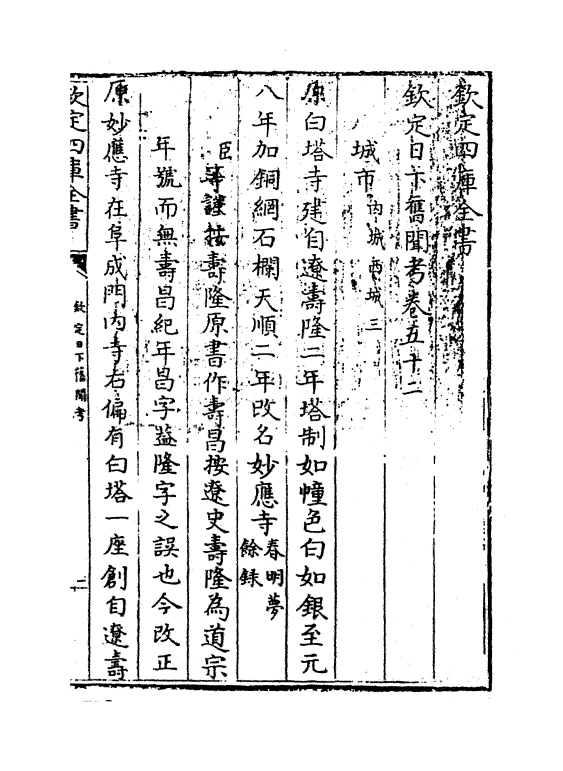 欽定四庫全書
欽定日下舊聞考卷五十二
城市内城西城三
原白塔寺建自遼壽隆二年塔制如幢色白如銀至元
八年加銅網石欄天順二年改名妙應寺春明夢餘録
臣等謹按壽隆原書作壽昌按遼史壽隆為道宗
年號而無壽昌紀年昌字益隆字之誤也今改正
原妙應寺在阜成門内寺右偏有白塔一座創自遼壽
欽定四庫全書
欽定日下舊聞考